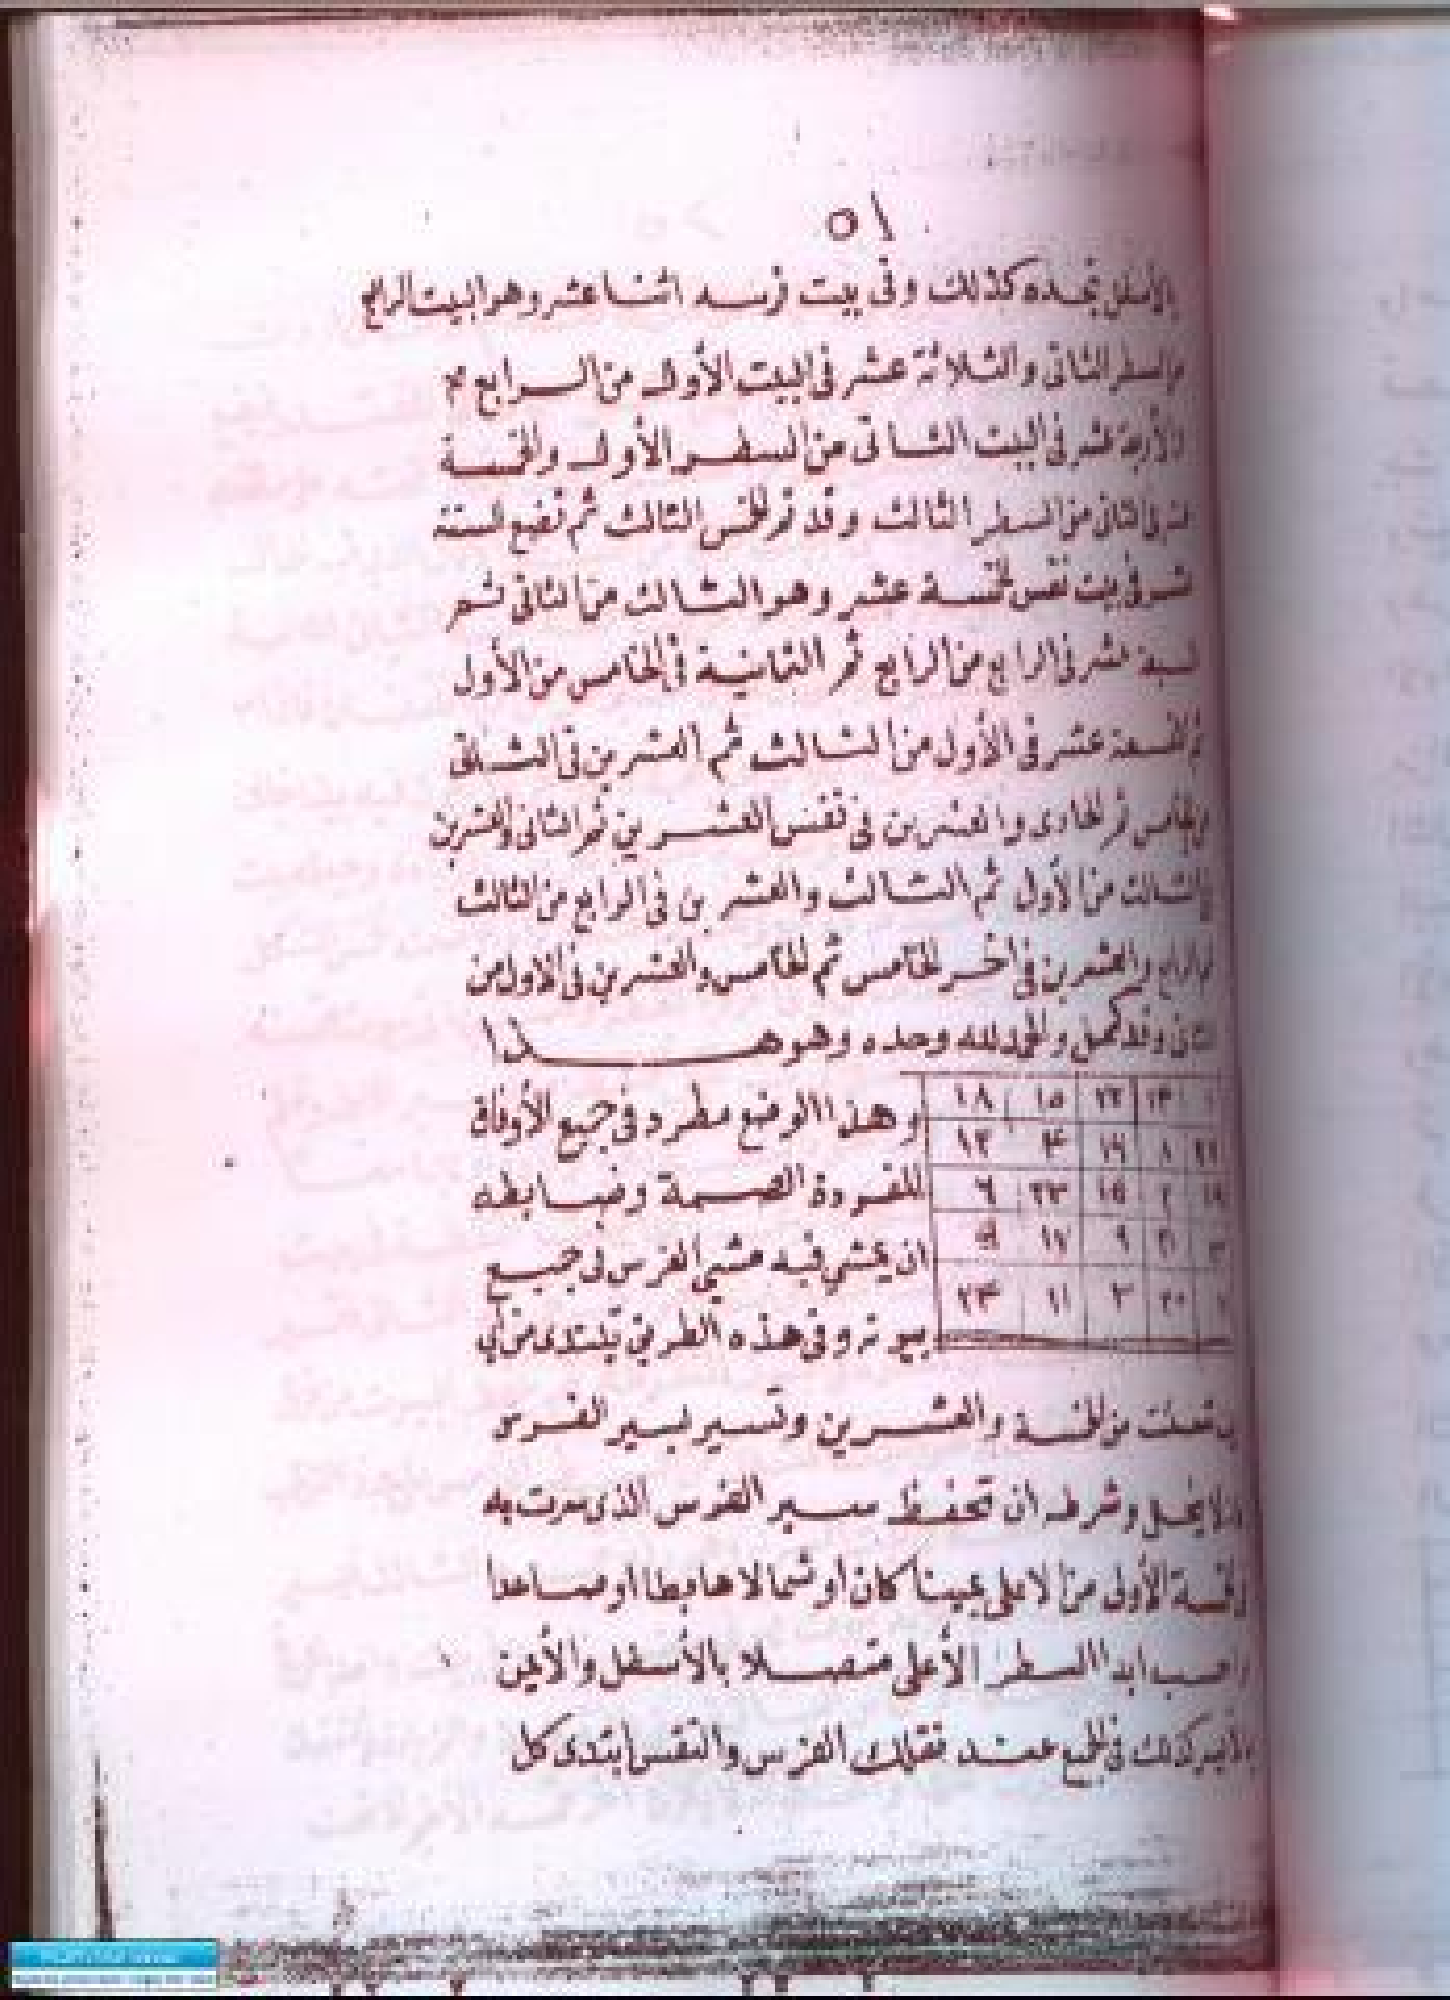 ٥١
بالأسفل تجده كذلك وفى بيت فرسه اثنا عشر وهو البيت الرابع
من السطر الثانى والثلاثة عشر فى البيت الأول من الرابع
الأربعة عشر فى البيت الثانى من السطر الأول والخمسة
عشر فى الثانى من السطر الثالث وقد تم الخمس الثالث ثم تضع الستة
عشر فى بيت نقس الخمسة عشر وهو الثالث من الثانى ثم
السبعة عشر فى الرابع من الرابع ثم الثمانية فى الخامس من الأول
ثم التسعة عشر فى الأول من الثالث ثم العشرين فى الثانى
من الخامس ثم الحادى والعشرين فى نقس العشرين ثم الثانى والعشرين
فى الثالث من الأول ثم الثالث والعشرين فى الرابع من الثالث
ثم الرابع والعشرين فى آخر الخامس ثم الخامس والعشرين فى الاول من
الثانى وقد كمل والحمد لله وحده وهو هذا
١٨ ١٥ ٢٢ ١٤
١٢ ٤ ١٦ ٨
٦ ٢٣ ١٥ ٢ ١٩
٥ ١٧ ٩ ٢١
٢٤ ١١ ٣ ٢٠
وهذا الوضع مطرد فى جميع الأوفاق
المفردة الصمة وضابطه
ان يمشى فيه مشى الفرس فى جميع
بيوته وفى هذه الطريق يبتدى من أى
من الخمسة والعشرين وتسير بسير الفرس
وشرطه ان تحفظ سير الفرس الذى سرت به
الخمسة الأولى من الاعلى يمينا كان او شمالا هابطا او صاعدا
واحسب ابدا السطر الأعلى متصلا بالأسفل والأيمن
بالأيسر كذلك فى الجميع عند نقلك الفرس والنقس ابتدى كل